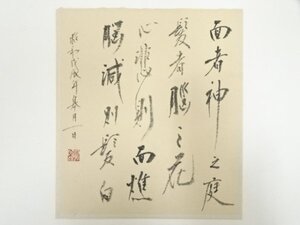 面者神之庭
髪者腦之花
心悲則面焦
腦減則髪白
昭和戊戌年皐月一日